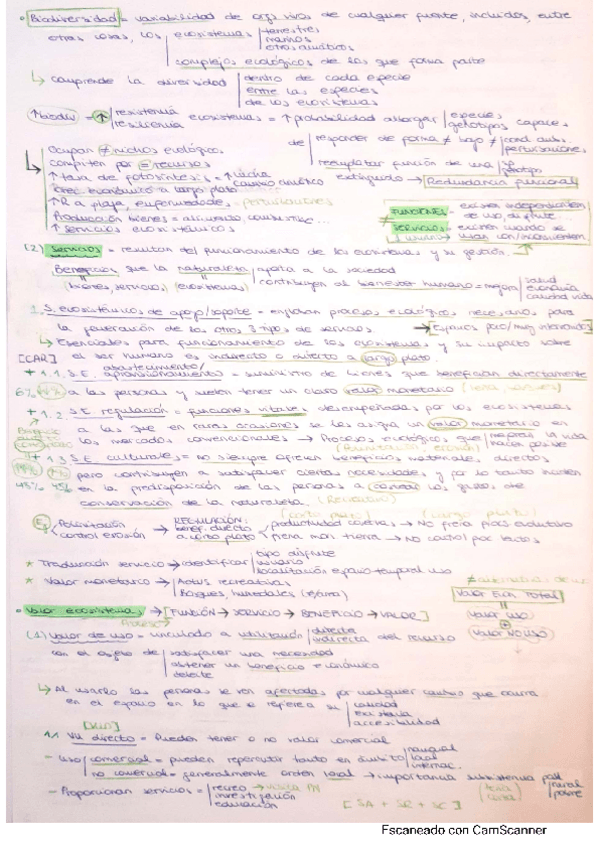 • Biodiversidad = variabilidad de org. vivos de cualquier fuente, incluidos, entre
otras cosas, los ecosistemas terrestres
marinos
otros acuáticos
complejos ecológicos de los que forma parte
↳ comprende la diversidad dentro de cada especie
entre las especies
de los ecosistemas
↑ biodiv = ↑ resistencia ecosistemas = ↑ probabilidad albergar especies
resiliencia genotipos capaces
de responder de forma ≠ bajo ≠ cond. amb.
perturbaciones
Ocupan ≠ nichos ecológicos
competir por = recursos reemplazar función de una sp
genotipo
↑ tasa de fotosíntesis = ↑ lucha cambio climático extinguido → Redundancia funcional
↑ R a plaga, enfermedades, perturbaciones
Producción bienes = alimento, combustible...
↑ Servicios ecosistémicos
FUNCIONES = existen independientem.
de uso, disfrute...
SERVICIOS = existen cuando se
usan con/inconscientem.
(2) Servicios = resultan del funcionamiento de los ecosistemas y su gestión.
Beneficios que la naturaleza aporta a la sociedad
(bienes, servicios) (ecosistemas) contribuyen al bienestar humano = mejora salud
economía
calidad vida
1. S. ecosistémicos de apoyo/soporte = engloban procesos ecológicos necesarios para
la generación de los otros 3 tipos de servicios
↳ Esenciales para funcionamiento de los ecosistemas y su impacto sobre
[CAR] el ser humano es indirecto o directo a largo plazo
abastecimiento/
+ 1.1. S.E. aprovisionamiento = suministro de bienes que benefician directamente
a las personas y suelen tener un claro valor monetario
+ 1.2. S.E. regulación = funciones vitales desempeñadas por los ecosistemas
a las que en raras ocasiones se les asigna un valor monetario en
los mercados convencionales → Procesos ecológicos que mejoran la vida
hacen posible
(Polinización) (erosión)
+ 1.3 S.E. culturales = no siempre ofrecen beneficios materiales directos
pero contribuyen a satisfacer ciertas necesidades y por lo tanto inciden
en la predisposición de las personas a costear los gastos de
conservación de la naturaleza.
(corto plazo) (largo plazo)
Ej Polinización REGULACIÓN:
control erosión benef. directo
a corto plazo productividad cosechas → No
frena mov. tierra → No control por
* Traducción servicio → identificar tipo disfrute
usuario
localización espacio temporal uso
* Valor monetario → Activs recreativas
Bosques, humedales
• Valor ecosistemas → [FUNCIÓN → SERVICIO → BENEFICIO → VALOR]
Valor Econ. Total
=
Valor USO
+
Valor NO USO
(1) Valor de uso = vinculado a utilización directa
indirecta del recurso
con el objeto de satisfacer una necesidad
obtener un beneficio económico
deleite
↳ Al usarlo las personas se ven afectadas por cualquier cambio que ocurra
en el espacio en lo que se refiere a su calidad
existencia
accesibilidad
1.1 VU directo = Pueden tener o no valor comercial
- Uso comercial = pueden repercutir tanto en ámbito
local
internac.
no comercial = generalmente orden local → importancia subsistencia pobl. rural
pobre
- Proporcionan servicios = recreo → visita PN
investigación
educación
[SA + SR + SC]
Escaneado con CamScanner